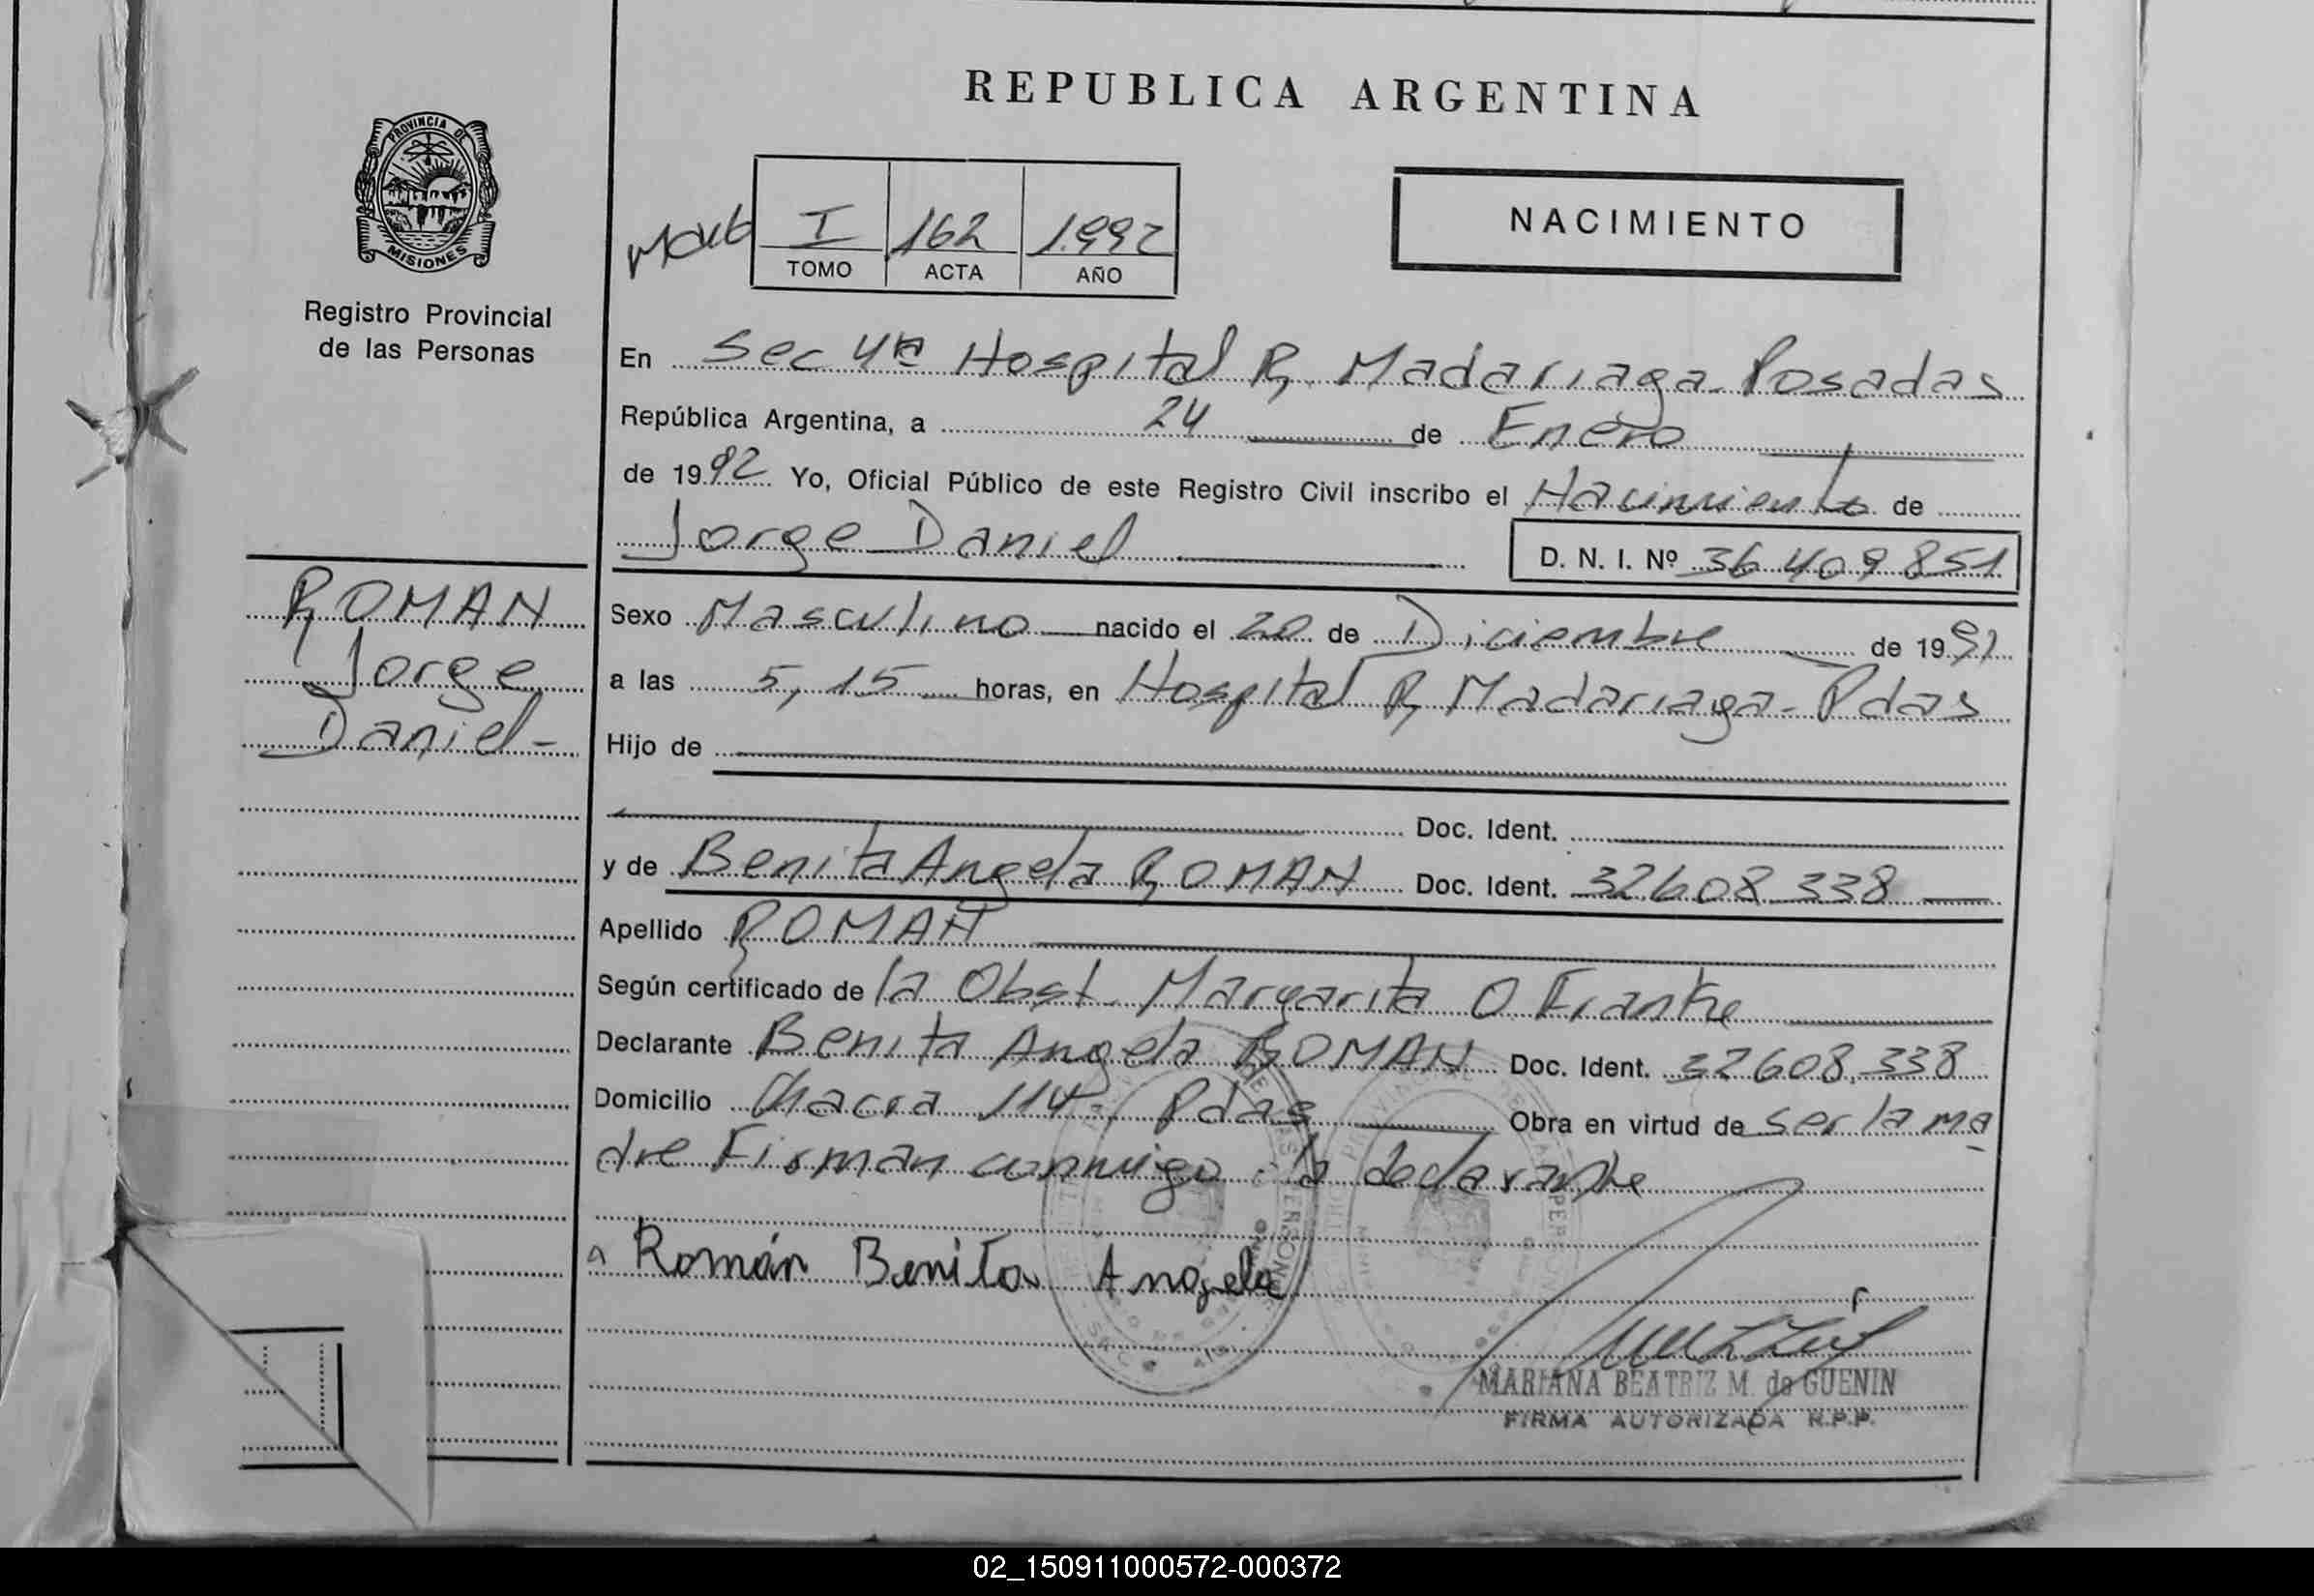 REPUBLICA ARGENTINA
PROVINCIA DE
MISIONES
Registro Provincial
de las Personas
I 162 1992
TOMO ACTA AÑO
NACIMIENTO
En Sec 4ta Hospital R. Madariaga - Posadas
República Argentina, a 24 de Enero
de 1992 Yo, Oficial Público de este Registro Civil inscribo el Nacimiento de
Jorge Daniel D. N. I. Nº 36 409 851
ROMAN
Jorge
Daniel-
Sexo Masculino nacido el 20 de Diciembre de 1991
a las 5,15 horas, en Hospital R. Madariaga - Pdas
Hijo de
Doc. Ident.
y de Benita Angela ROMAN Doc. Ident. 32608338
Apellido ROMAN
Según certificado de la Obst. Margarita O. Franke
Declarante Benita Angela ROMAN Doc. Ident. 32608.338
Domicilio Chacra 114, Pdas Obra en virtud de ser la ma
dre Firman conmigo: la declarante
Román Benita Angela
MARIANA BEATRIZ M. de GUENIN
FIRMA AUTORIZADA R.P.P.
02_150911000572-000372